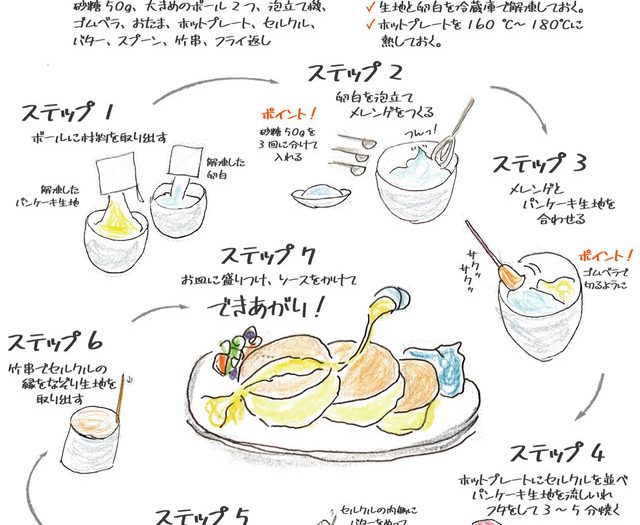 砂糖50g、大きめのボール2つ、泡立て機、
ゴムベラ、おたま、ホットプレート、セルクル、
バター、スプーン、竹串、フライ返し
✓生地と卵白を冷蔵庫で解凍しておく。
✓ホットプレートを160℃〜180℃に
熱しておく。
ステップ1
ボールに材料を取り出す
解凍した
パンケーキ生地
解凍した
卵白
ステップ2
卵白を泡立て
メレンゲをつくる
ポイント!
砂糖50gを
3回に分けて
入れる
つんっ!
ステップ3
メレンゲと
パンケーキ生地を
合わせる
サクッ
サクッ
ポイント!
ゴムベラで
切るように
ステップ4
ホットプレートにセルクルを並べ
パンケーキ生地を流しいれ
フタをして3〜5分焼く
ステップ5
セルクルの内側に
バターをぬって
ステップ6
竹串でセルクルの
縁をなぞり生地を
取り出す
ステップ7
お皿に盛りつけ、ソースをかけて
できあがり!